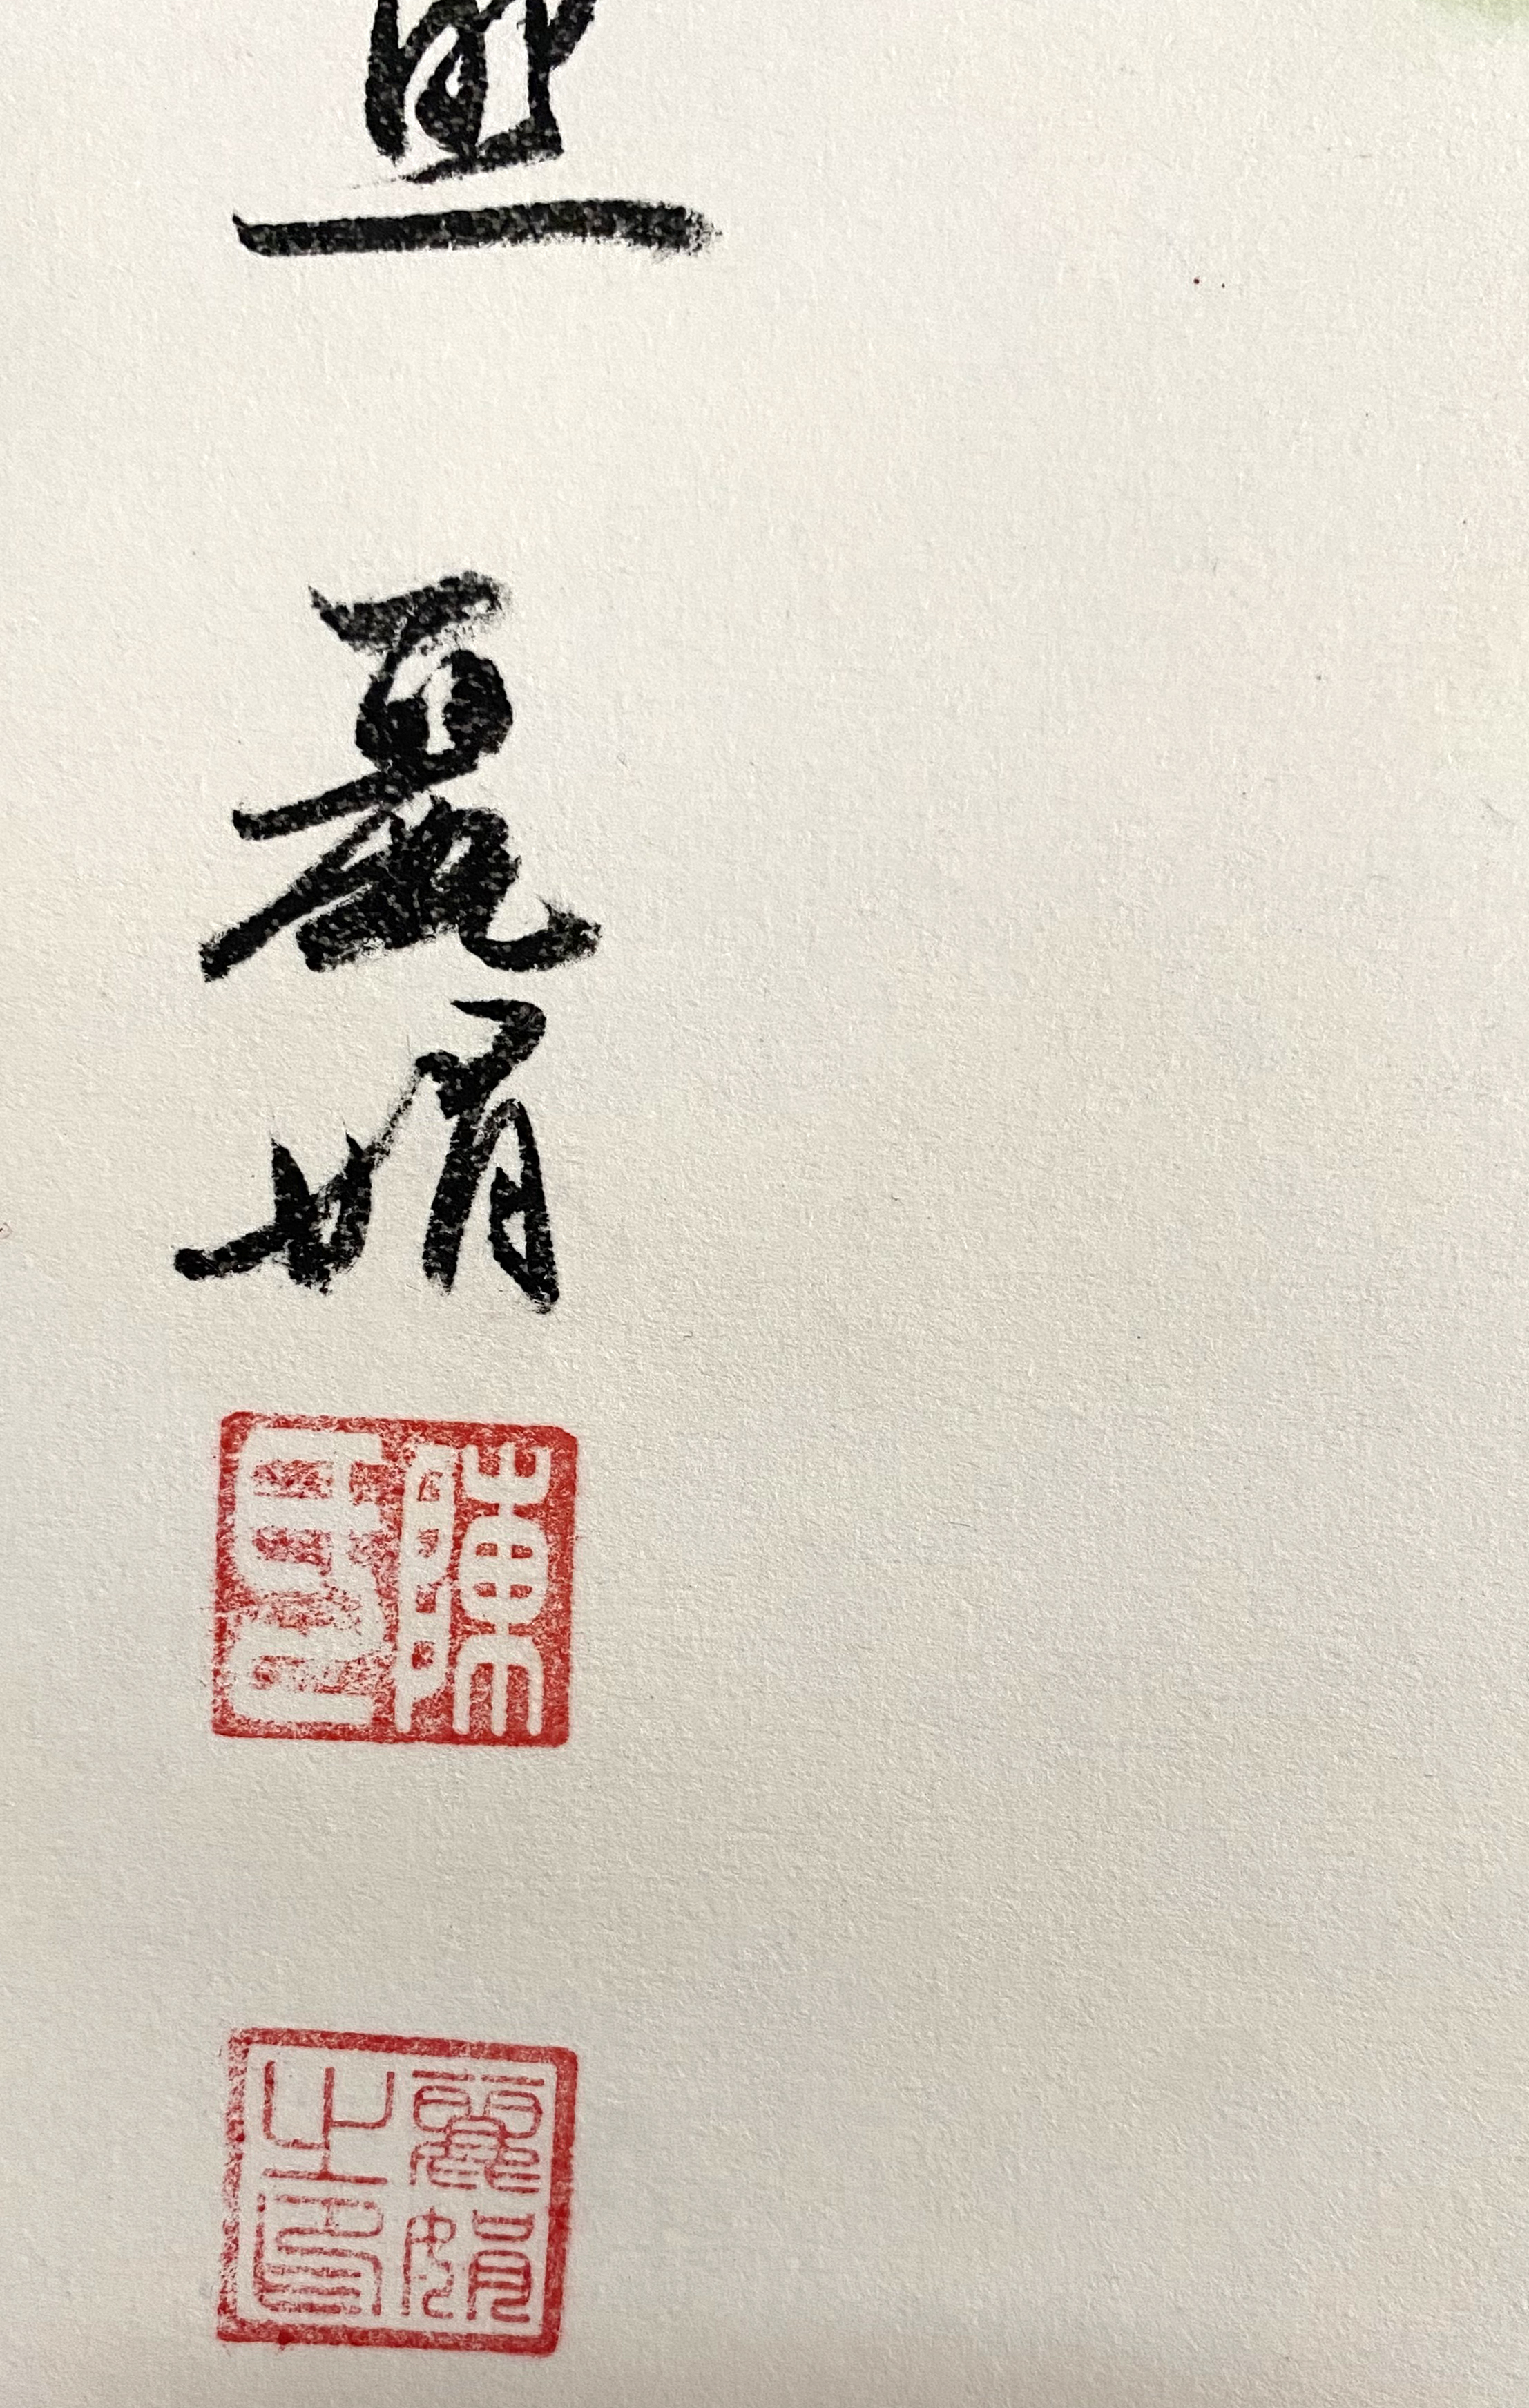 麗娟
陳印
麗娟之印